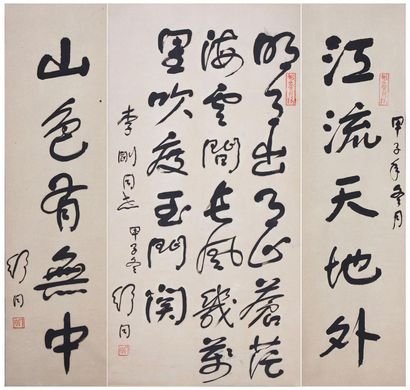 江流天地外
甲子年冬月
明月出天山蒼茫
海雲間長風幾萬
里吹度玉門關
李剛同志 甲子冬 舒同
山色有無中
舒同